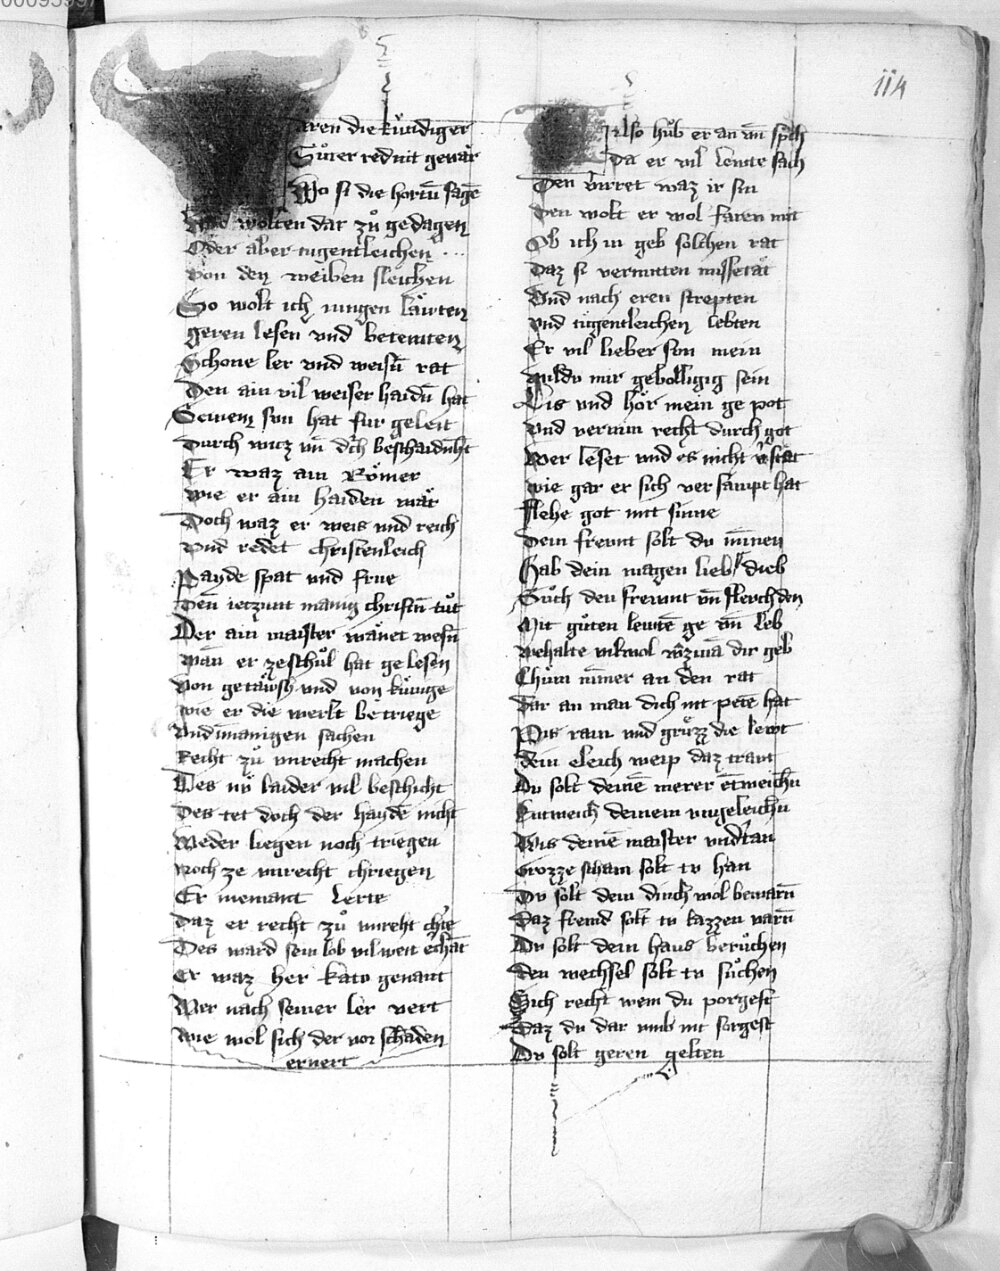 114
aren die kündiger
Süzer red nit gevär
Wo si die hortn̄ sagē
wolten dar zů gedagen
Oder aber tugentleichen
von den weiben sleichen
So wolt ich iungen läwten
geren lesen vnd betewten
Schone ler vnd weisn̄ rat
Den ain vil weiser haidn̄ hat
Seinem sun hat fur geleit
Durch wicz vn̄ dch beschaidnht
Er waz ain Römer
wie er ain haiden wär
Doch waz er weis vnd reich
vnd redet christenleich
Payde spat vnd frue
Den ieczunt manig christn̄ tůt
Der ain maister wänet wesn̄
wan er ze schůl hat gelesen
von getäwsch vnd von kriege
wie er die werlt betriege
vnd in manigen sachen
Recht zů vnrecht machen
Des nů laider vil beschicht
Des tet doch der haydē nicht
Weder liegen noch triegen
noch ze vnrecht chriegen
Er niemant lerte
Daz er recht zů vnreht chte
Des ward sein lob vil weit
Er waz her kato genant
Wer nach seiner ler vert
wie wol sich der vor schaden
ernert
Also hůb er an vn̄ spch
Da er vil lewte sach
Den virret waz ir sin
Den wolt er wol faren mit
Ob ich in geb sölchen rat
Daz si vermiten missetät
Vnd nach eren strepten
vnd tugentleichen lebten
Er vil lieber sun mein
wildu mir gevolligig sein
Lis vnd hör mein ge pot
vnd vernim recht durch got
Wer leset vnd es nicht v̄stat
wie gar er sich versampt hat
flehe got mit sinne
Dein frewnt solt du minnen
Hab dein magen lieb dieb
Sůch den frewnt vn̄ flewch den
Mit gůten lewtē ge vn̄ leb
wehalte vil wol waz mā dir geb
Chům nimer an den rat
Dar an man dich nit petē hat
Pis rain vnd grůzz die lewt
dein eleich weip daz trawt
Du solt deinē merer entweichn̄
Entweich deinem vngeleichn̄
Wis deinē maister vndtan
Grozze scham solt tu han
Du solt dein dinch wol bewarn̄
Daz fremd solt tu lazzen varn̄
Du solt dein haus berůchen
den wechsel solt tu sůchen
Sich recht wem du porgest
Daz du dar vmb nit sorgest
Du solt geren gelten